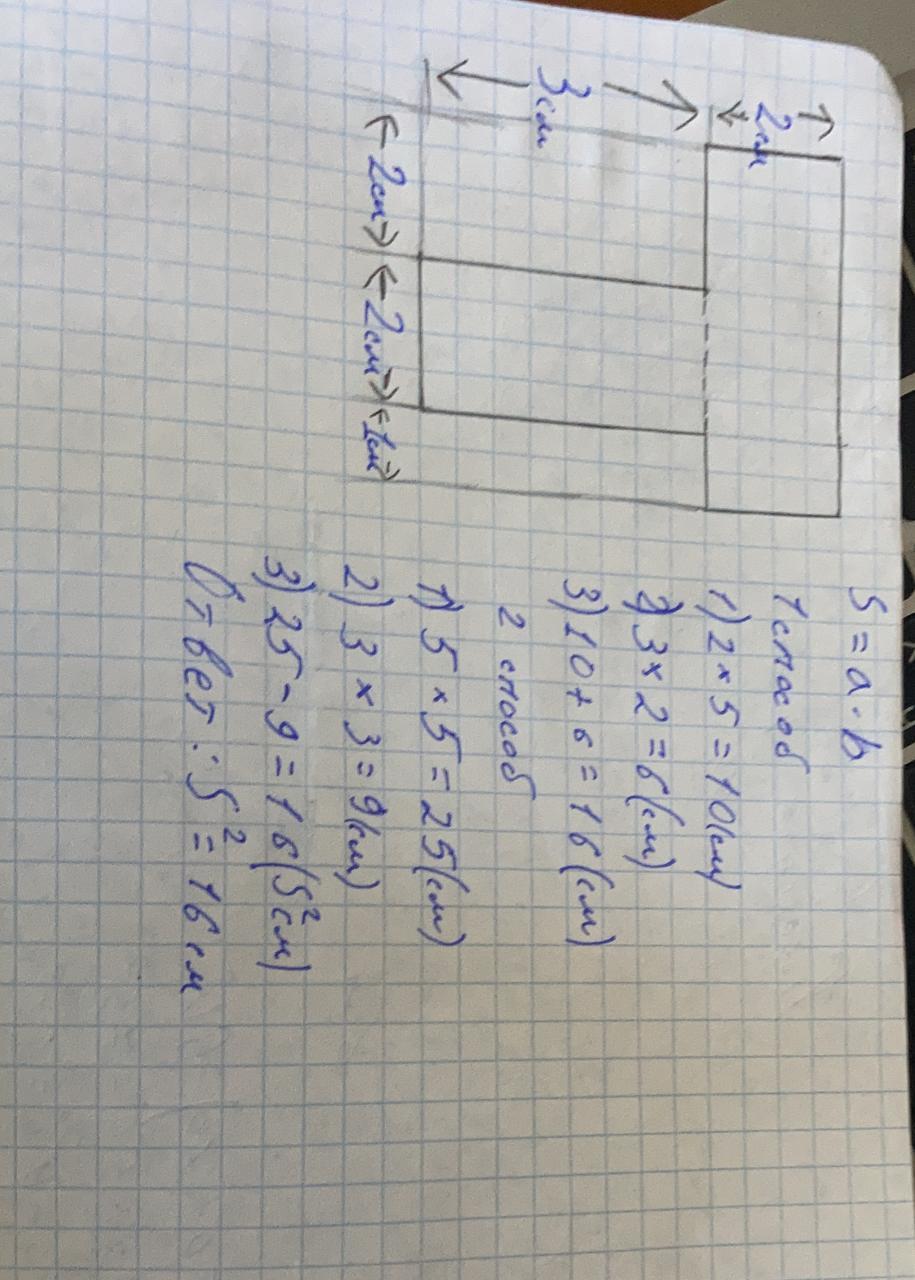 2см
3см
2см 2см 1см
S = a · b
1 способ
1) 2 × 5 = 10(см)
2) 3 × 2 = 6(см)
3) 10 + 6 = 16(см)
2 способ
1) 5 × 5 = 25(см)
2) 3 × 3 = 9(см)
3) 25 - 9 = 16(S²см)
Ответ: S² = 16см